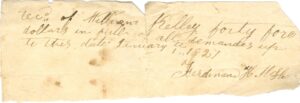 of William Kelley forty fore
dollars in full of all demandes up
to this date January
1 1827
Ferdinan H. M